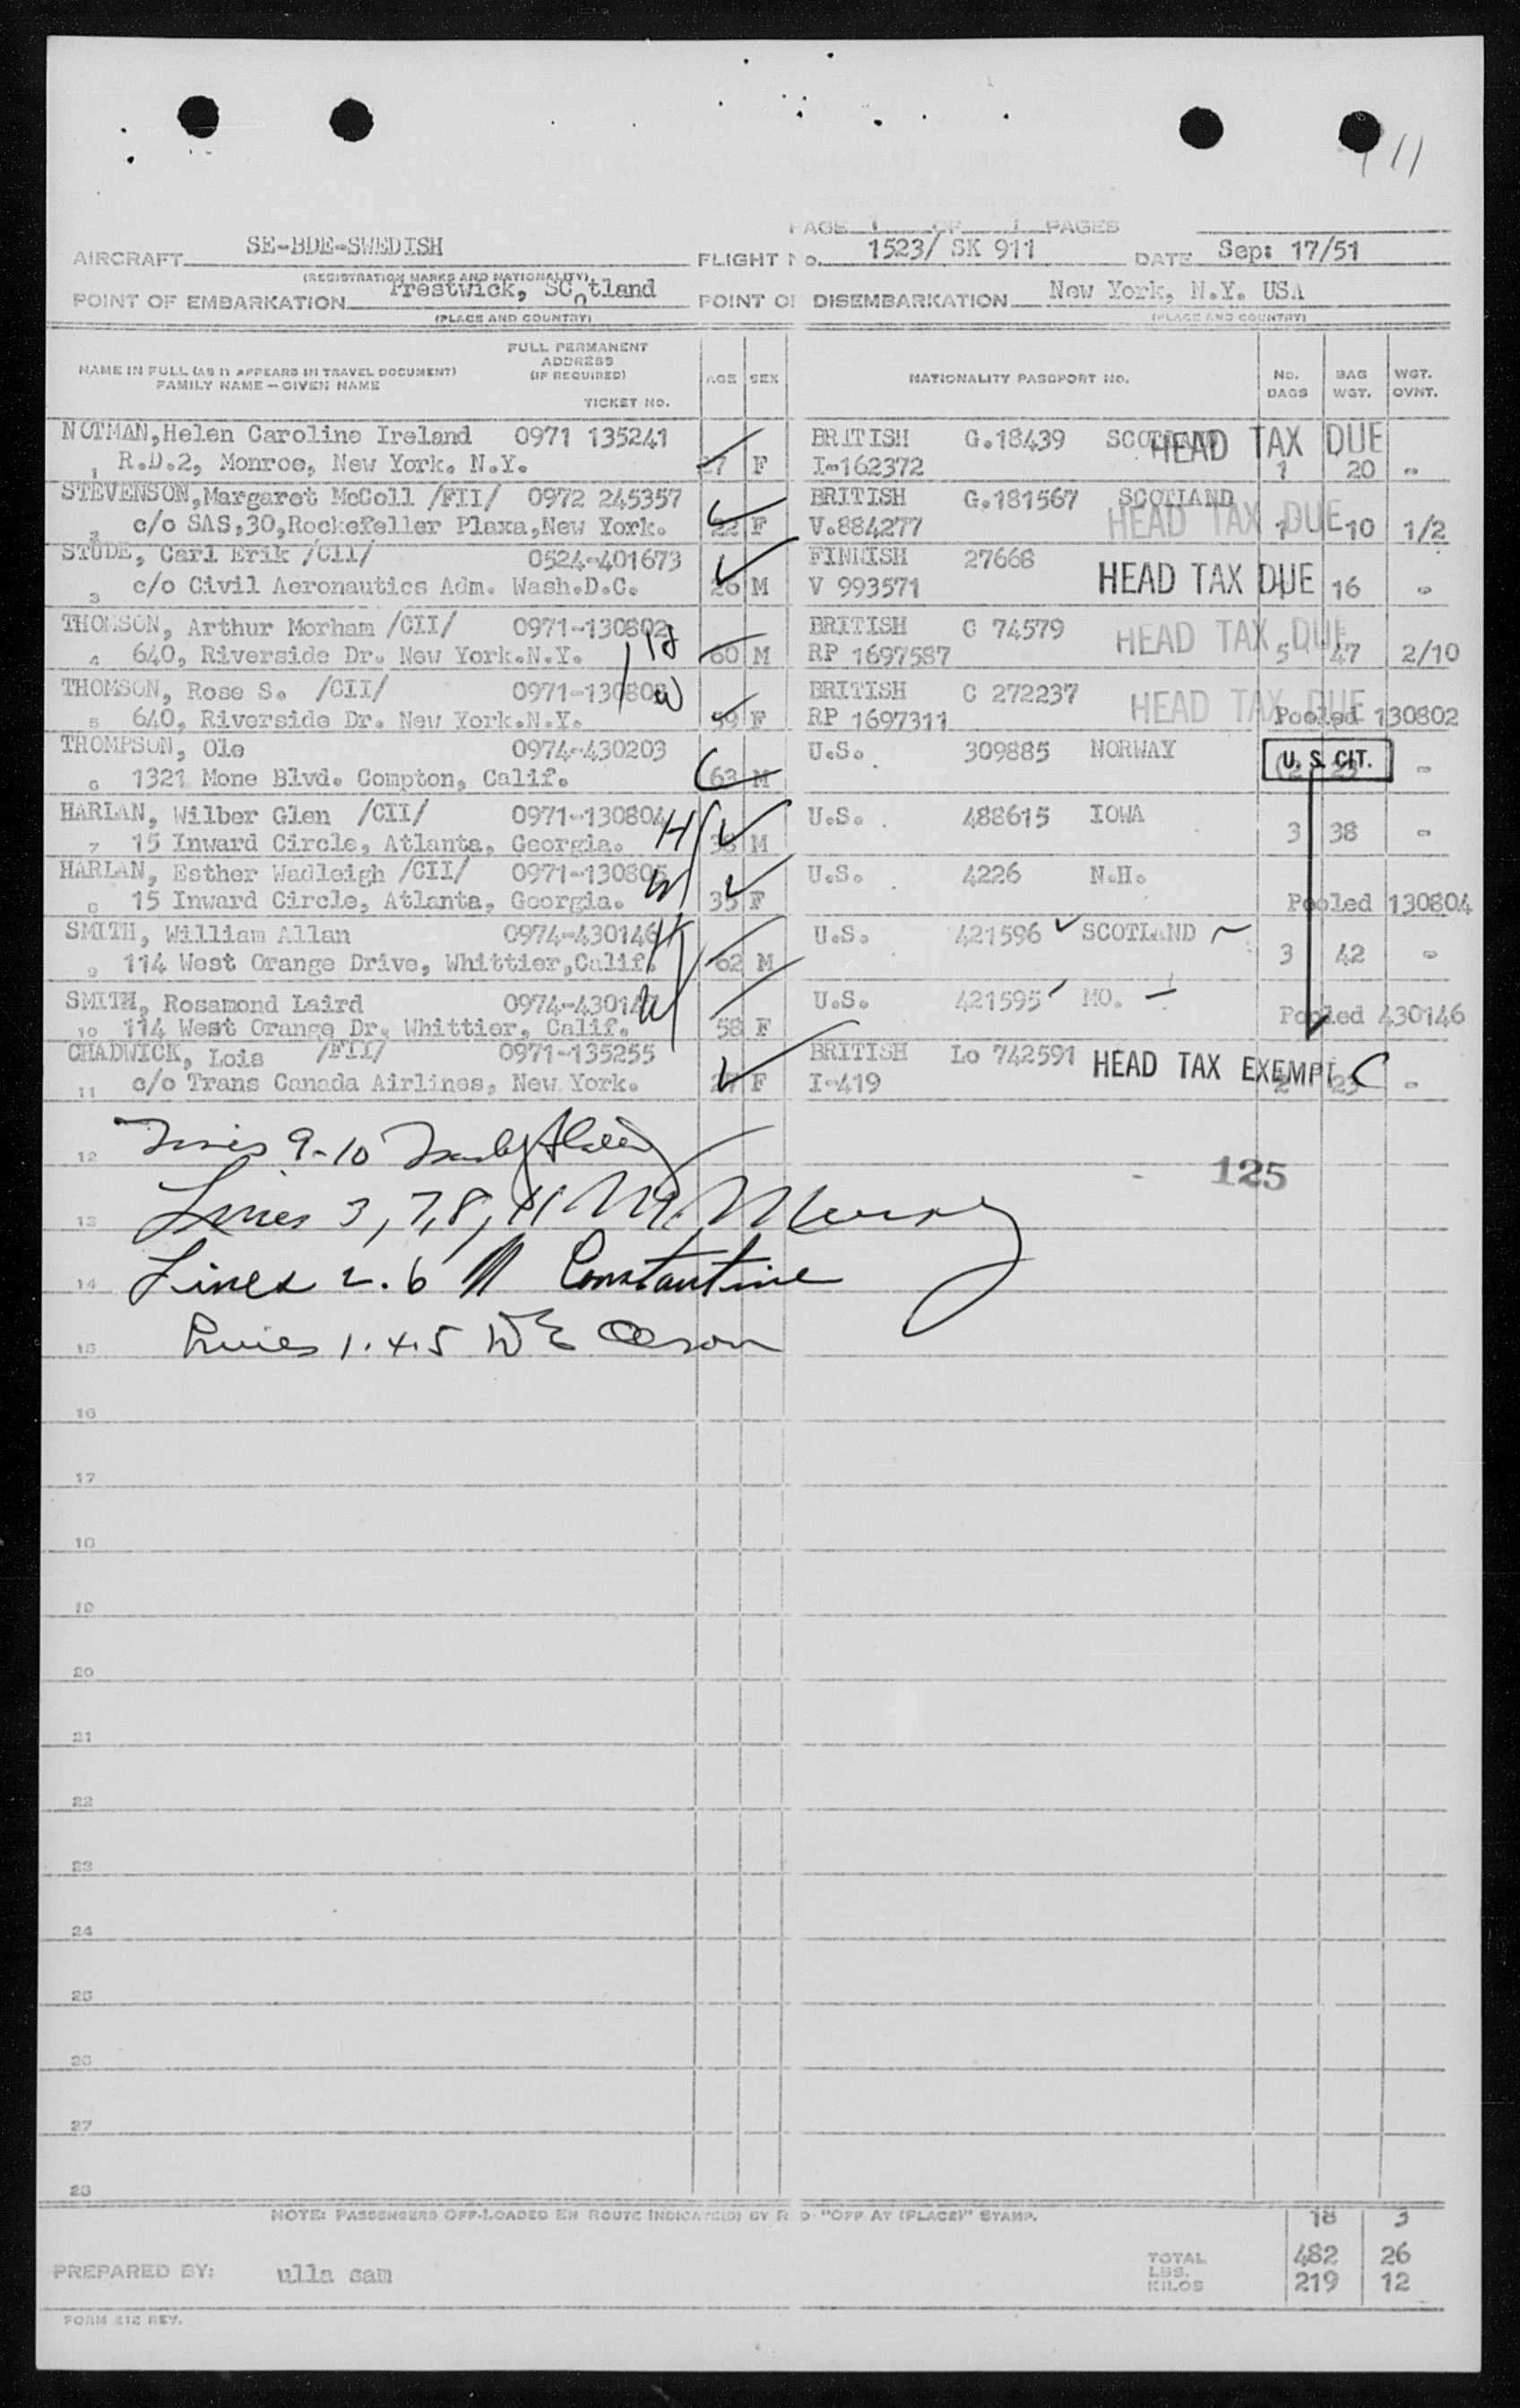 11
PAGE 1 OF 1 PAGES
AIRCRAFT SE-BDE-SWEDISH FLIGHT No. 1523/ SK 911 DATE Sep: 17/51
(REGISTRATION MARKS AND NATIONALITY)
POINT OF EMBARKATION Prestwick, SCotland POINT OF DISEMBARKATION New York, N.Y. USA
(PLACE AND COUNTRY) (PLACE AND COUNTRY)
NAME IN FULL (AS IT APPEARS IN TRAVEL DOCUMENT) FAMILY NAME - GIVEN NAME FULL PERMANENT ADDRESS (IF REQUIRED) TICKET NO. AGE SEX NATIONALITY PASSPORT NO. No. BAGS BAG WGT. WGT. OVNT.
NOTMAN,Helen Caroline Ireland 0971 135241 BRITISH G.18439 SCOTLAND HEAD TAX DUE
1 R.D.2, Monroe, New York. N.Y. 27 F I-162372 1 20 -
STEVENSON,Margaret McColl /FII/ 0972 245357 BRITISH G.181567 SCOTLAND HEAD TAX DUE
2 c/o SAS,30,Rockefeller Plaxa,New York. 22 F V.884277 1 10 1/2
STUDE, Carl Erik /CII/ 0524-401673 FINNISH 27668 HEAD TAX DUE
3 c/o Civil Aeronautics Adm. Wash.D.C. 26 M V 993571 1 16 -
THOMSON, Arthur Morham /CII/ 0971-130802 H BRITISH C 74579 HEAD TAX DUE
4 640, Riverside Dr. New York.N.Y. 60 M RP 1697587 5 47 2/10
THOMSON, Rose S. /CII/ 0971-130803 W BRITISH C 272237 HEAD TAX DUE
5 640, Riverside Dr. New York.N.Y. 59 F RP 1697311 Pooled 130802
THOMPSON, Ole 0974-430203 U.S. 309885 NORWAY U. S. CIT.
6 1321 Mone Blvd. Compton, Calif. 63 M 2 23 -
HARLAN, Wilber Glen /CII/ 0971-130804 H U.S. 488615 IOWA
7 15 Inward Circle, Atlanta, Georgia. 38 M 3 38 -
HARLAN, Esther Wadleigh /CII/ 0971-130805 W U.S. 4226 N.H.
8 15 Inward Circle, Atlanta, Georgia. 35 F Pooled 130804
SMITH, William Allan 0974-430146 H U.S. 421596 SCOTLAND
9 114 West Orange Drive, Whittier,Calif. 62 M 3 42 -
SMITH, Rosamond Laird 0974-430147 W U.S. 421595 MO.
10 114 West Orange Dr. Whittier, Calif. 58 F Pooled 430146
CHADWICK, Lois /FII/ 0971-135255 BRITISH Lo 742591 HEAD TAX EXEMPT C
11 c/o Trans Canada Airlines, New York. 27 F I-419 2 23 -
12 Lines 9-10
125
13 Lines 3, 7, 8, 11 M. Murray
14 Lines 2. 6 Constantine
15 Lines 1. 4. 5 W E Olson
16
17
18
19
20
21
22
23
24
25
26
27
28
NOTE: PASSENGERS OFF-LOADED EN ROUTE INDICATED BY RED "OFF AT (PLACE)" STAMP.
18 3
TOTAL LBS. 482 26
KILOS 219 12
PREPARED BY: ulla sam
FORM 212 REV.